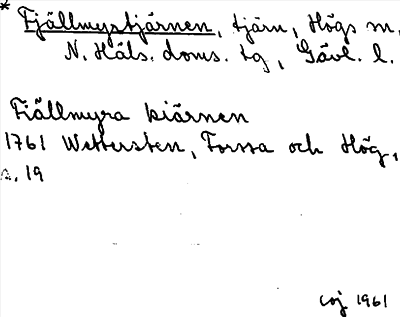 * Fjällmystjärnen, tjärn, Högs sn,
N. Häls. doms. tg, Gävl. l.
Fiällmyra kiärnen
1761 Wettersten, Forssa och Hög,
s. 19
coj 1961